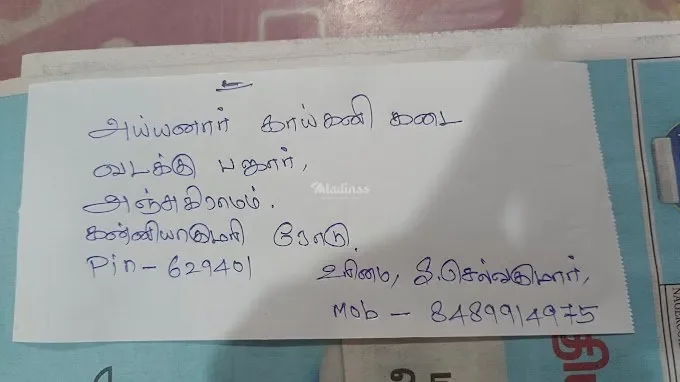 உ
அய்யனார் காய்கனி கடை
வடக்கு பஜார்,
அஞ்சுகிராமம்.
கன்னியாகுமரி ரோடு.
Pin - 629401
உரிமை, தி.செல்வகுமார்,
Mob - 8489914975